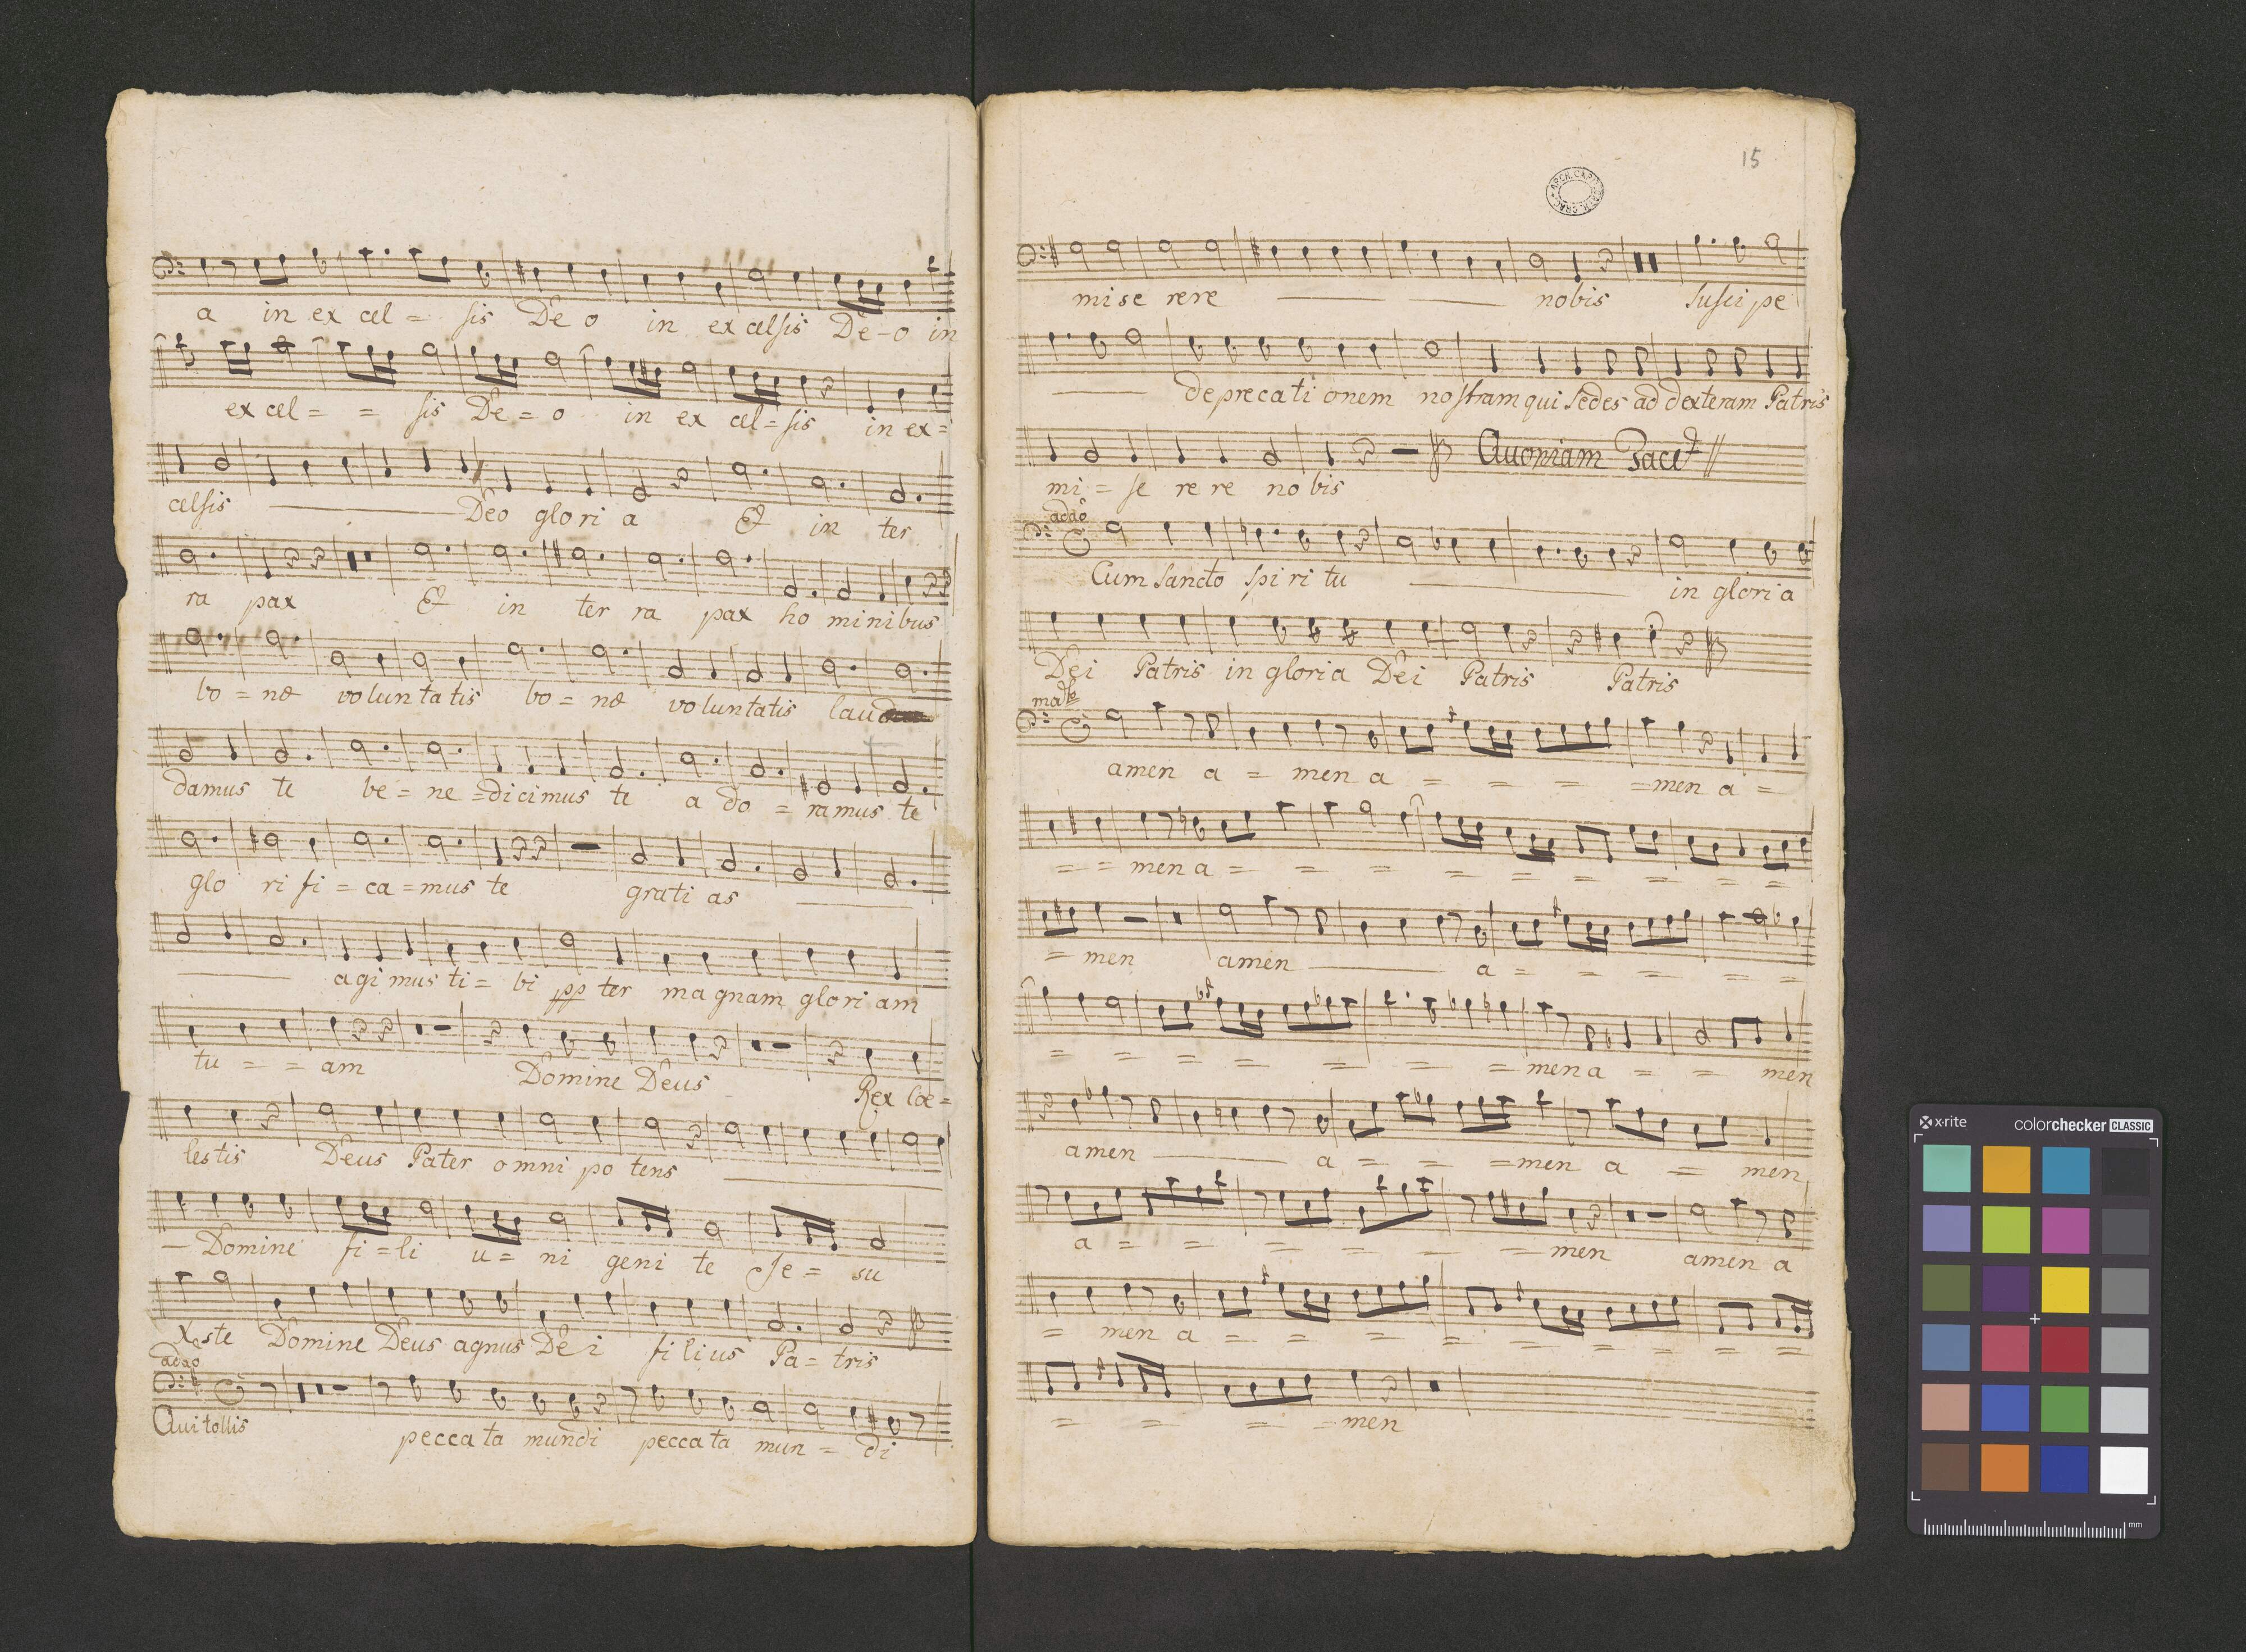 a in ex cel = sis De o in ex celsis De - o in
ex cel = = sis De = o in ex cel = sis in ex =
celsis Deo glo ri a Et in ter
ra pax Et in ter ra pax ho mi ni bus
bo = næ vo lun ta tis bo = næ vo lun tatis lau
damus te be = ne = di ci mus te a do = ra mus te
glo ri fi = ca = mus te grati as
agi mus ti = bi pp ter ma gnam glo ri am
tu = = am Domine Deus Rex cœ =
les tis Deus Pater o mni po tens
Domine fi = li u = ni geni te Je = su
Xste Domine Deus agnus De i fi li us Pa = tris
adaô
Qui tollis pecca ta mundi pecca ta mun = di
15
ARCH. CAPIT.
mi se re re nobis susci pe
de pre ca ti onem nostram qui sedes ad dexteram Patris
mi = se re re no bis Quoniam Tacet //
adaô
Cum sancto spi ri tu in glori a
Dei Patris in gloria Dei Patris Patris
amen a = men a = = = = men a =
= = men a = = = = = = = =
= men amen a = = = = =
= = = = = = = men a = = men
amen a = = = men a = men
a = = = = = = men amen a
= men a = = = = = = = =
= = = = men